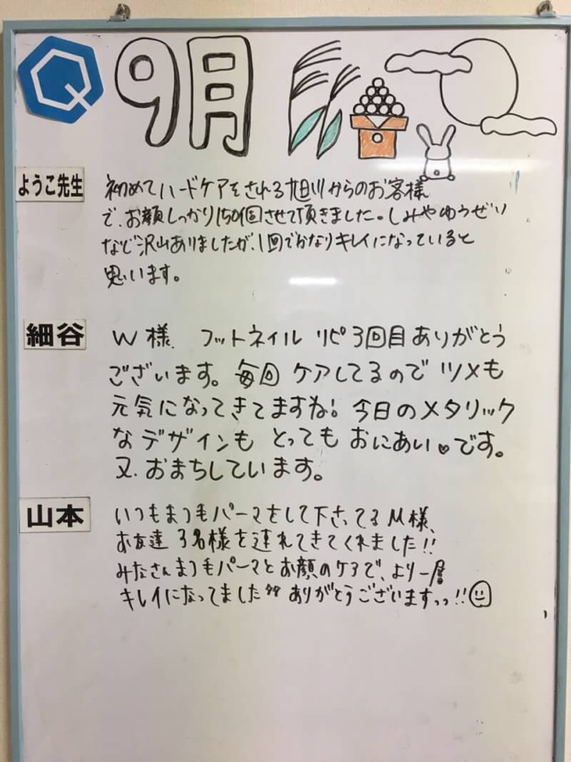 Q 9月
ようこ先生
初めてハードケアをされる旭川からのお客様
で、お顔しっかり150個させて頂きました。しみやゆうぜい
など沢山ありましたが、1回でかなりキレイになっていると
思います。
細谷
W様、フットネイル リピ3回目ありがとう
ございます。毎回 ケアしてるので ツメも
元気になってきてますね! 今日のメタリック
なデザインも とっても おにあい♥です。
又、おまちしています。
山本
いつもまつ毛パーマをして下さってるM様、
お友達3名様を連れてきてくれました!!
みなさんまつ毛パーマとお顔のケアで、より一層
キレイになってました ありがとうございますっっ!!